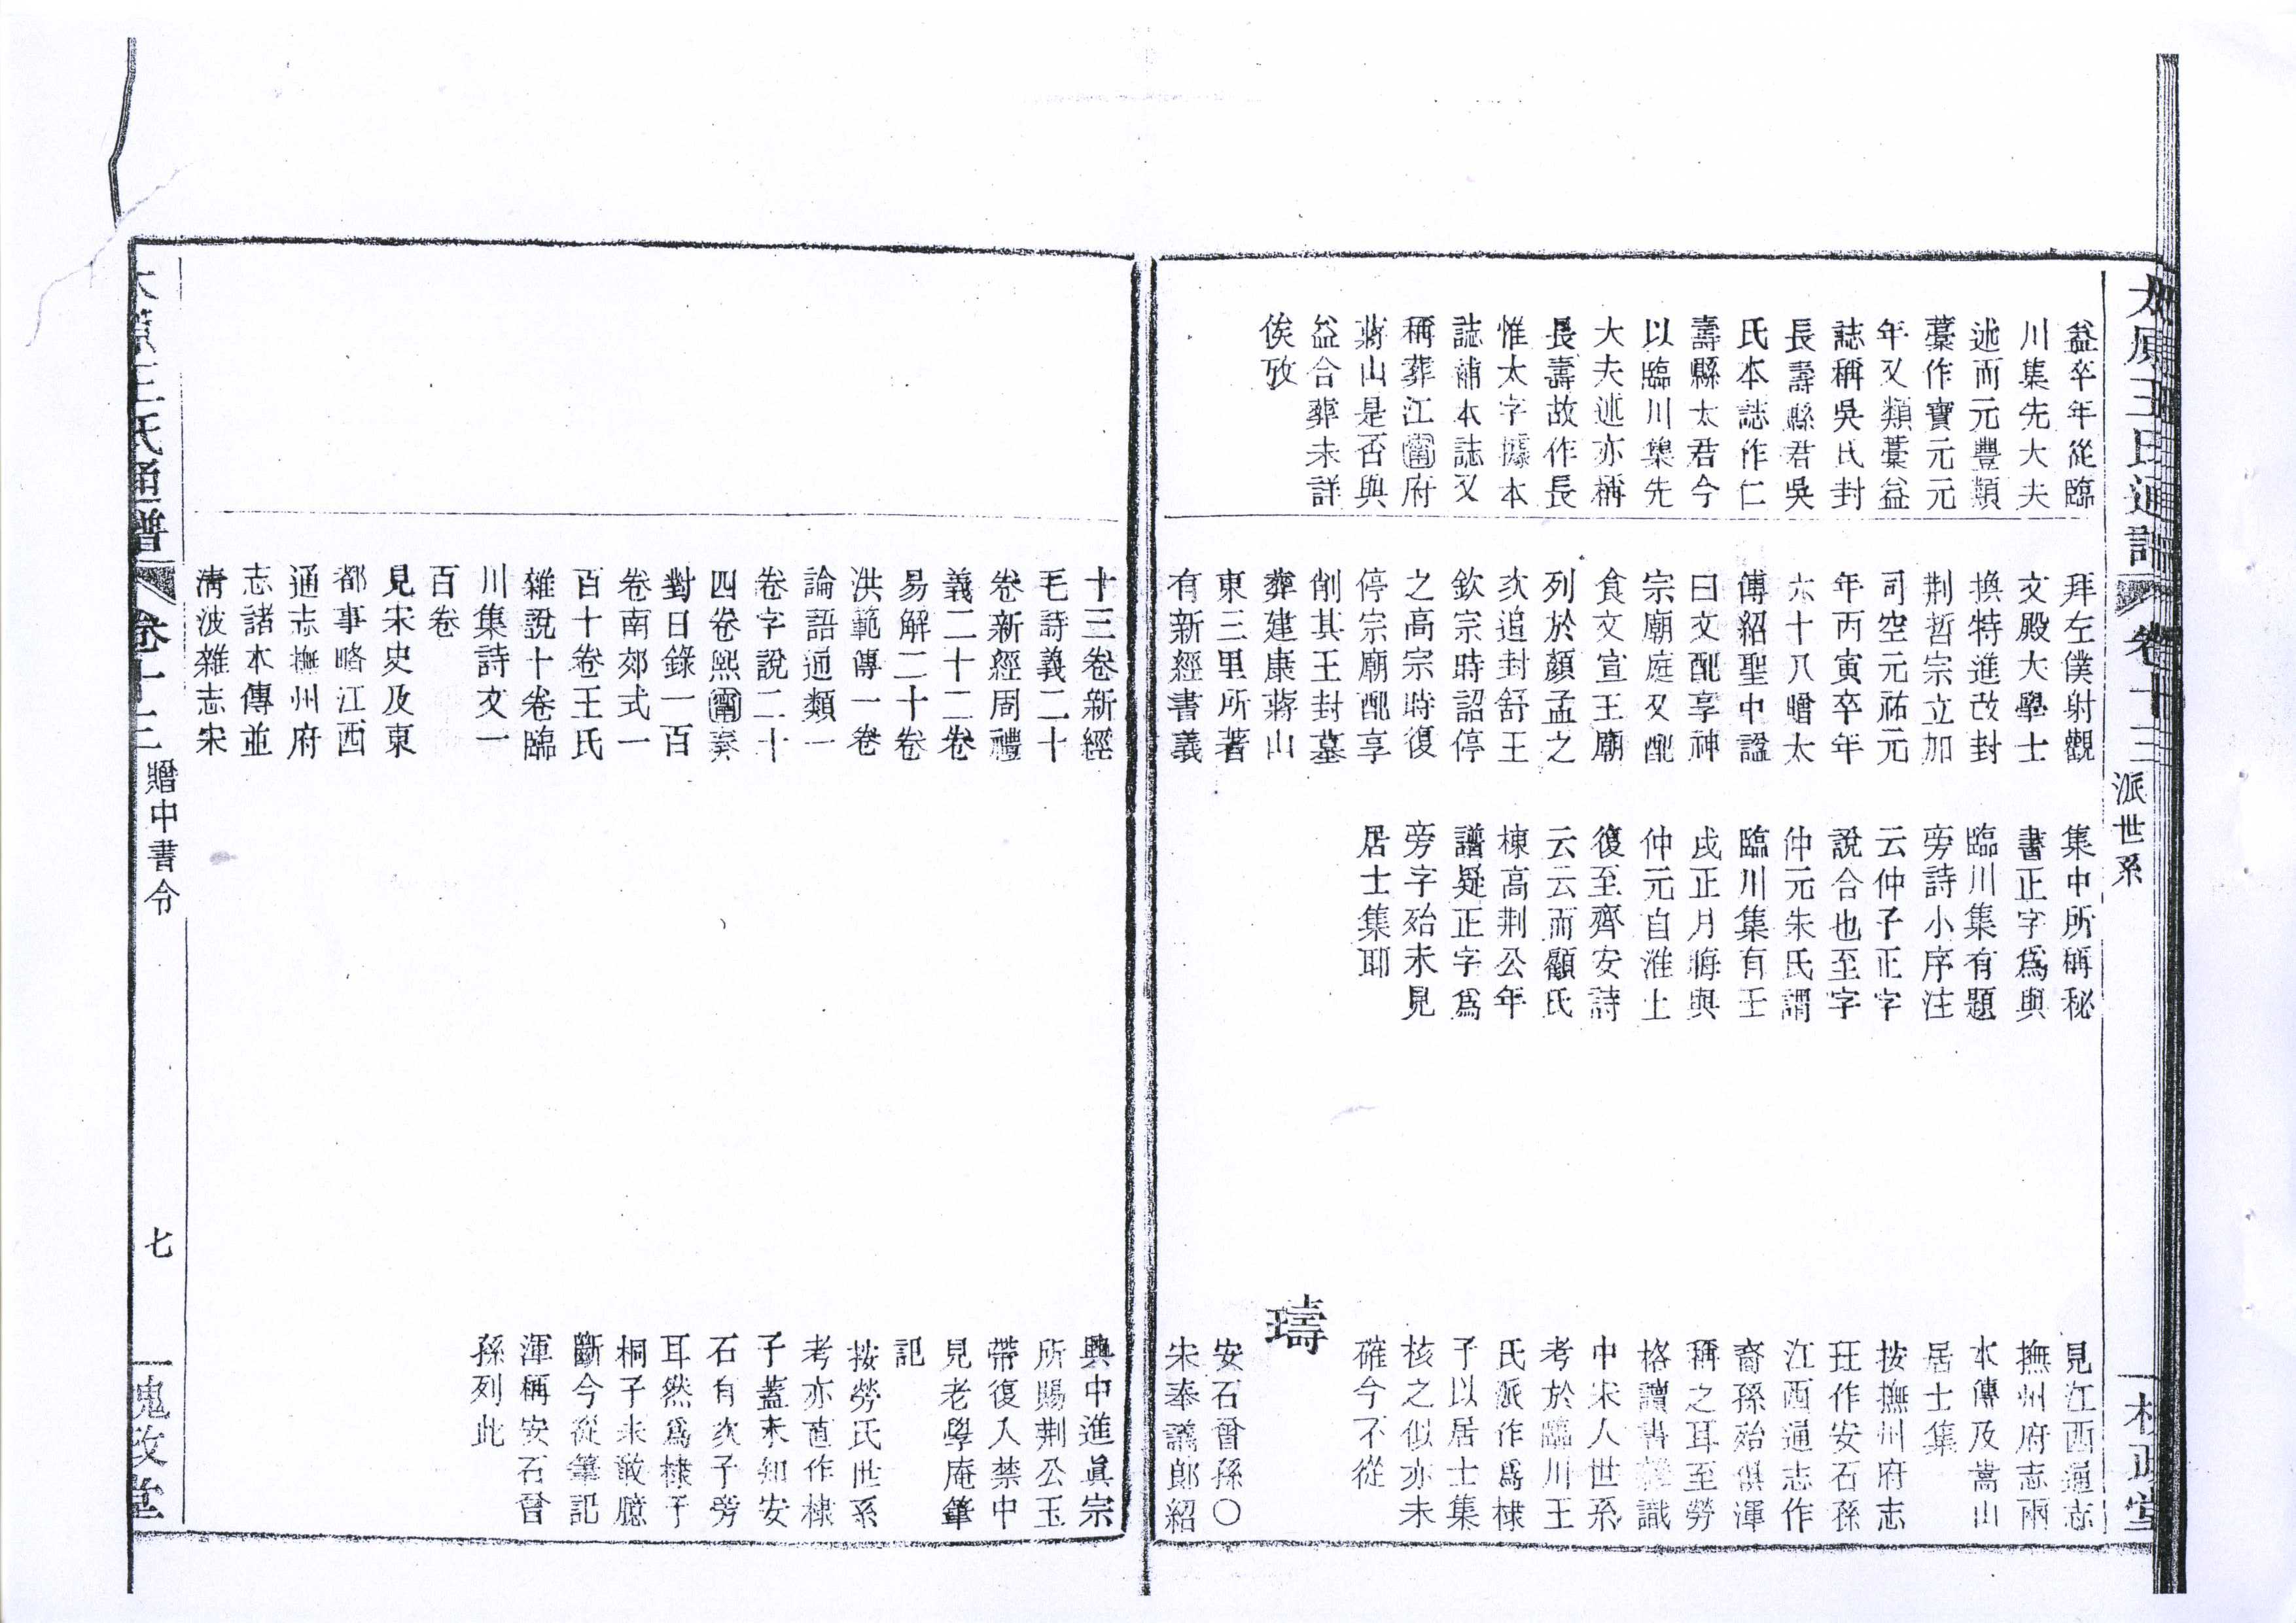 太原王氏通譜
卷十三
派世系
槐政堂
益卒年從臨
川集先大夫
述而元豐類
藁作寶元元
年又類藁益
誌稱吳氏封
長壽縣君吳
氏本誌作仁
壽縣太君今
以臨川集先
大夫述亦稱
長壽故作長
惟太字據本
誌補本誌又
稱葬江甯府
蔣山是否與
益合葬未詳
俟攷
拜左僕射觀
文殿大學士
換特進改封
荆哲宗立加
司空元祐元
年丙寅卒年
六十八贈太
傅紹聖中諡
曰文配享神
宗廟庭又配
食文宣王廟
列於顏孟之
次追封舒王
欽宗時詔停
之高宗時復
停宗廟配享
削其王封墓
葬建康蔣山
東三里所著
有新經書義
集中所稱秘
書正字爲與
臨川集有題
旁詩小序注
云仲子正字
說合也至字
仲元朱氏謂
臨川集有壬
戌正月晦與
仲元自淮上
復至齊安詩
云云而顧氏
棟高荆公年
譜疑正字爲
旁字殆未見
居士集耶
見江西通志
撫州府志兩
本傳及嵩山
居士集
按撫州府志
玨作安石孫
江西通志作
裔孫殆俱渾
稱之耳至勞
格讀書雜識
中宋人世系
考於臨川王
氏派作爲棣
子以居士集
核之似亦未
確今不從
璹
安石曾孫○
宋奉議郎紹
十三卷新經
毛詩義二十
卷新經周禮
義二十二卷
易解二十卷
洪範傳一卷
論語通類一
卷字說二十
四卷熙甯奏
對日錄一百
卷南郊式一
百十卷王氏
雜說十卷臨
川集詩文一
百卷
見宋史及東
都事略江西
通志撫州府
志諸本傳並
清波雜志宋
興中進眞宗
所賜荆公玉
帶復入禁中
見老學庵筆
記
按勞氏世系
考亦直作棣
子蓋未知安
石有次子旁
耳然爲棣子
桐子未敢臆
斷今從筆記
渾稱安石曾
孫列此
太原王氏通譜
卷十三
贈中書令
七
槐政堂